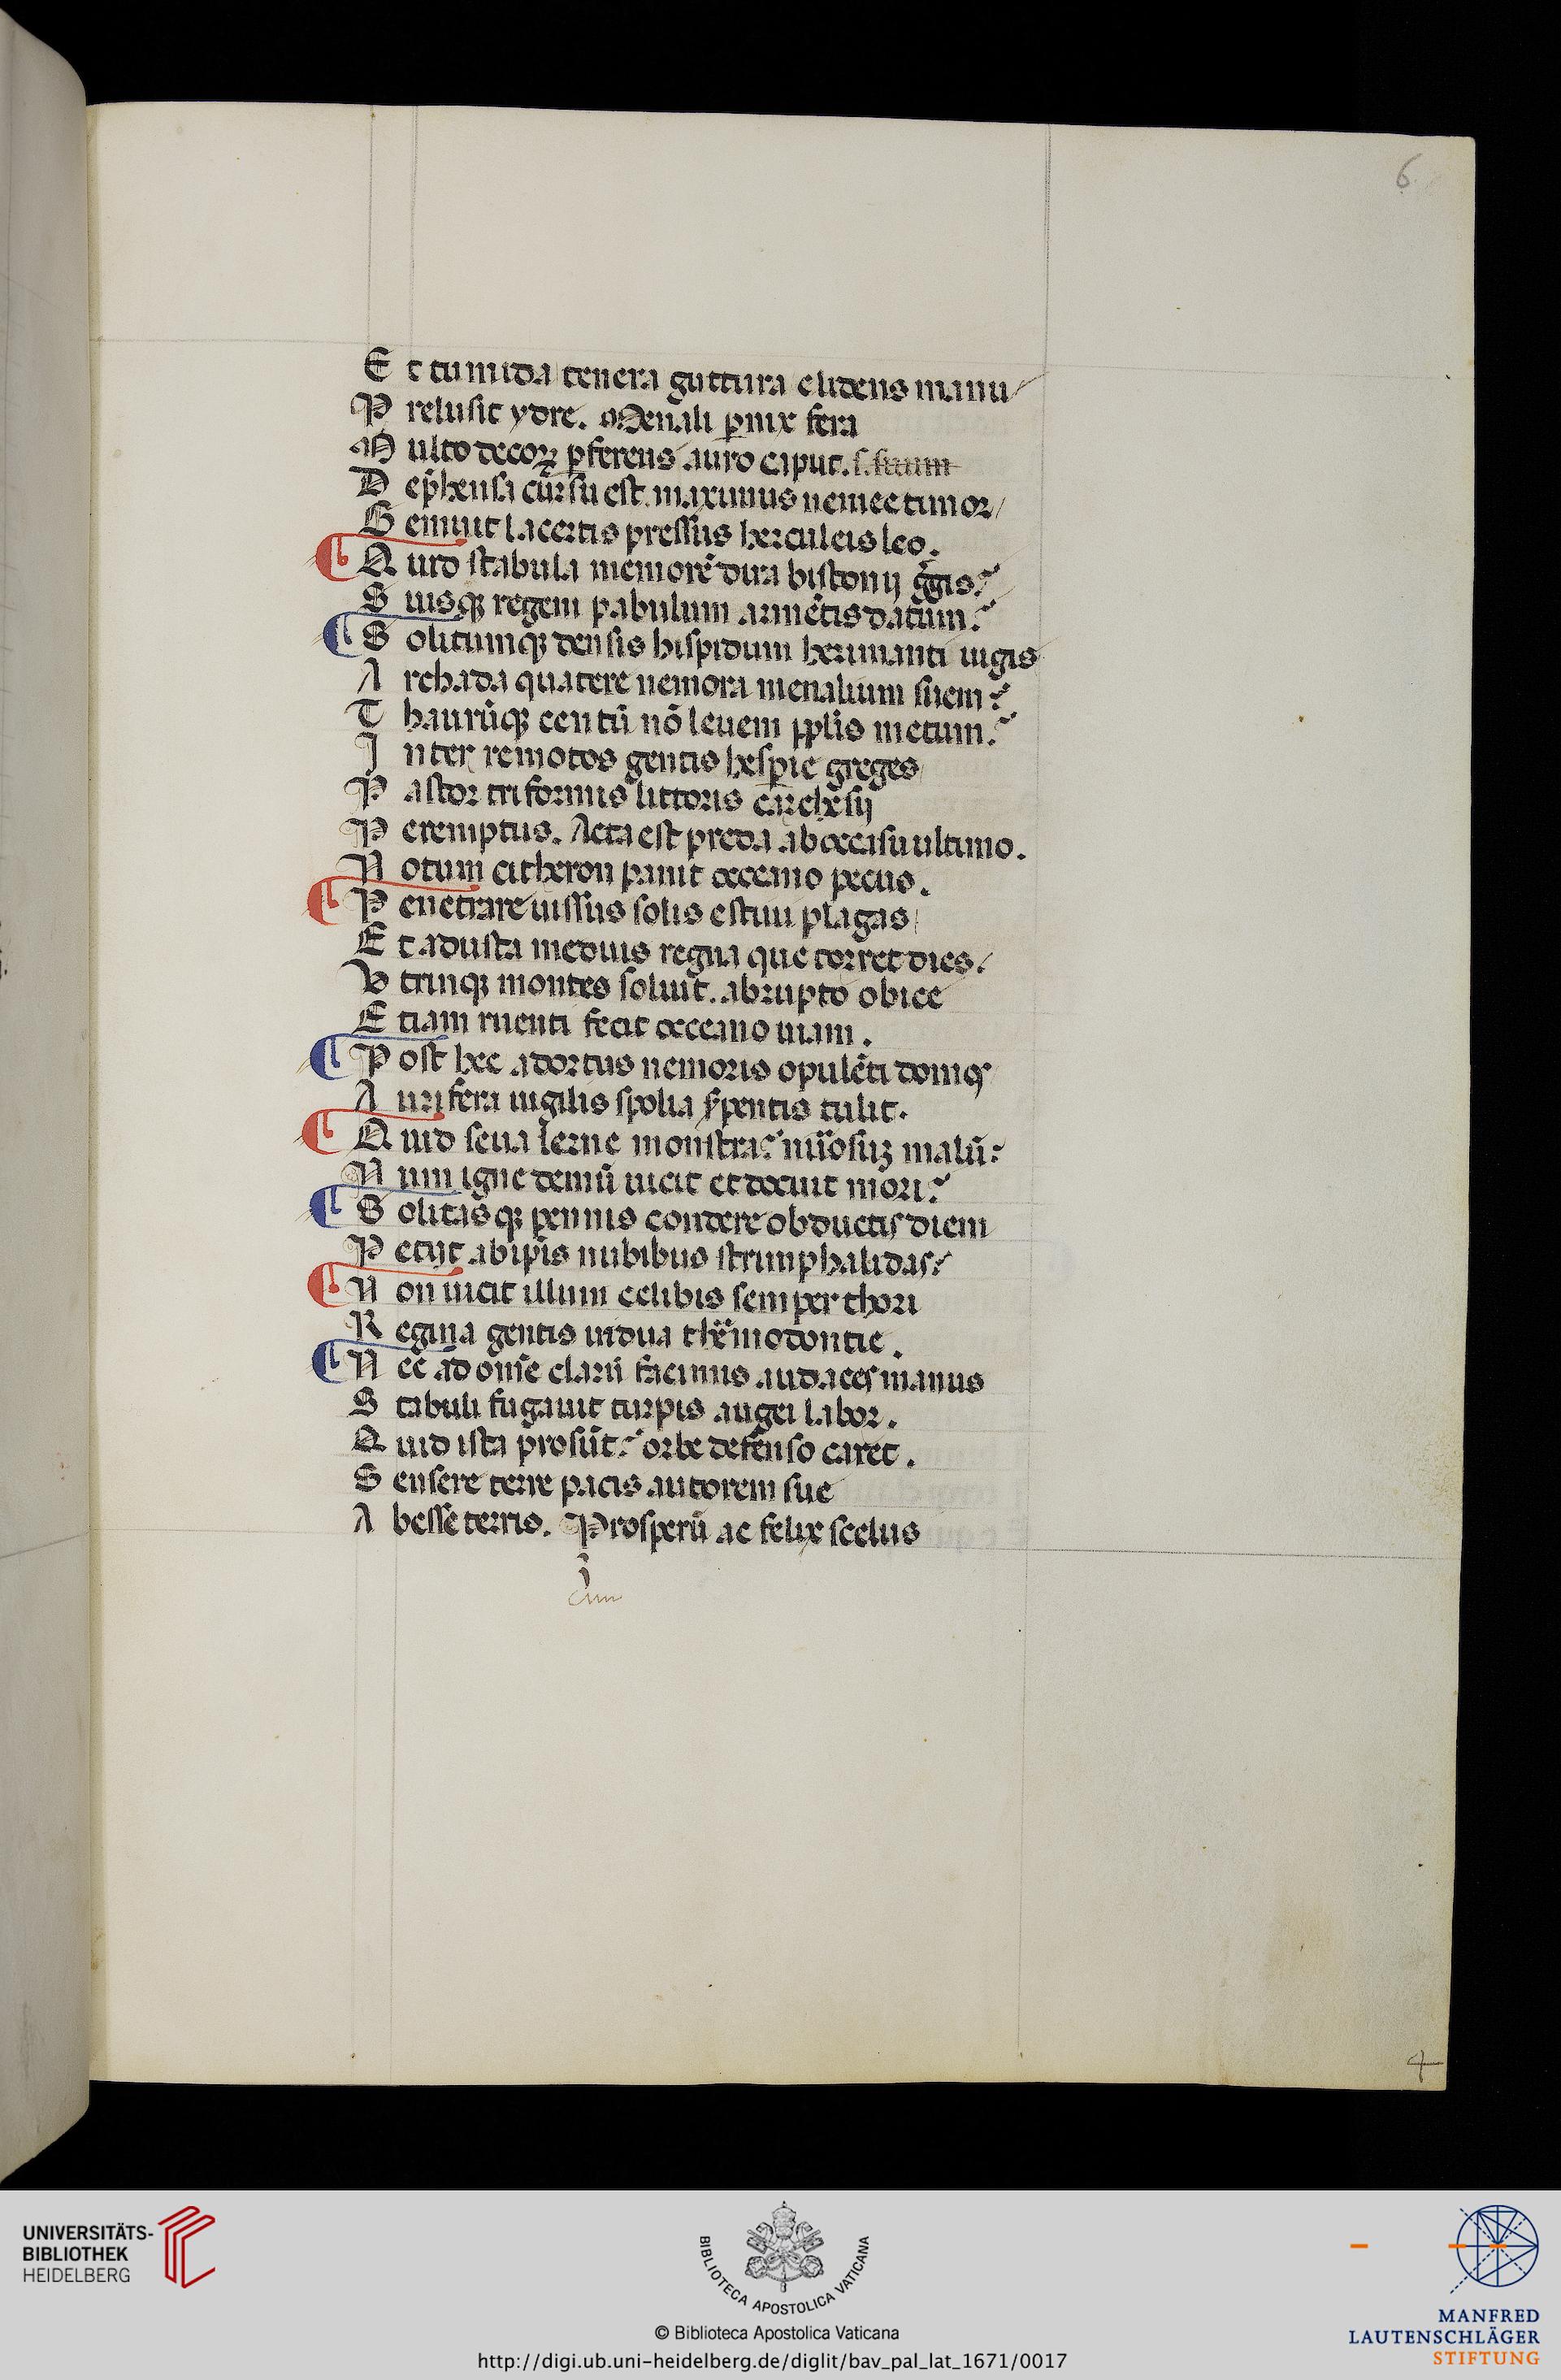 6
Et tumida tenera guttura elidens manu/
Prelusit ydre. Menali ꝑnix fera
Multo decoꝝ p̄ferens auro caput. s. suum
Dep̄hensa cursu est. maximus nemee timor/
Gemuit lacertis pressus herculeis leo.
¶ Quid stabula memorē dira bistonij g̃gis?
Suisqꝫ regem pabulum armētis datum?
¶ Solitumqꝫ densis hispidum herimanti iugis
Archada quatere nemora menalium suem?
Thaurūqꝫ centū nō leuem pplīs metum?
Inter remotos gentis hesꝑie greges
Pastor triformis littoris carthesij
Peremptus. Acta est preda ab occasu ultimo.
Notum citheron pauit occeano pecus.
¶ Penetrare iussus solis estiui plagas
Et adusta medius regna que torret dies/
Vtrinqꝫ montes soluit. abrupto obice
Etiam ruenti fecit occeano uiam.
¶ Post hec adortus nemoris opulēti domꝰ
Aurifera uigilis spolia s̕pentis tulit.
¶ Quid seua lerne monstra? nu͛osuꝫ malū?
Num igne demū uicit et docuit mori?
¶ Solitasqꝫ pennis condere obductis diem
Petijt ab ip̄is nubibus strimphalidas?
¶ Non uicit illum celibis semper thori
Regina gentis uidua the͛modontie.
¶ Nec ad om̄e clarū facinus audaces manus
Stabuli fugauit turpis augei labor.
Quid ista prosūt? orbe defenso caret.
Sensere terre pacis autorem sue
Abesse terris. Prosperū ac felix scelus
4
UNIVERSITÄTS-
BIBLIOTHEK
HEIDELBERG
BIBLIOTECA APOSTOLICA VATICANA
© Biblioteca Apostolica Vaticana
http://digi.ub.uni-heidelberg.de/diglit/bav_pal_lat_1671/0017
MANFRED
LAUTENSCHLÄGER
STIFTUNG